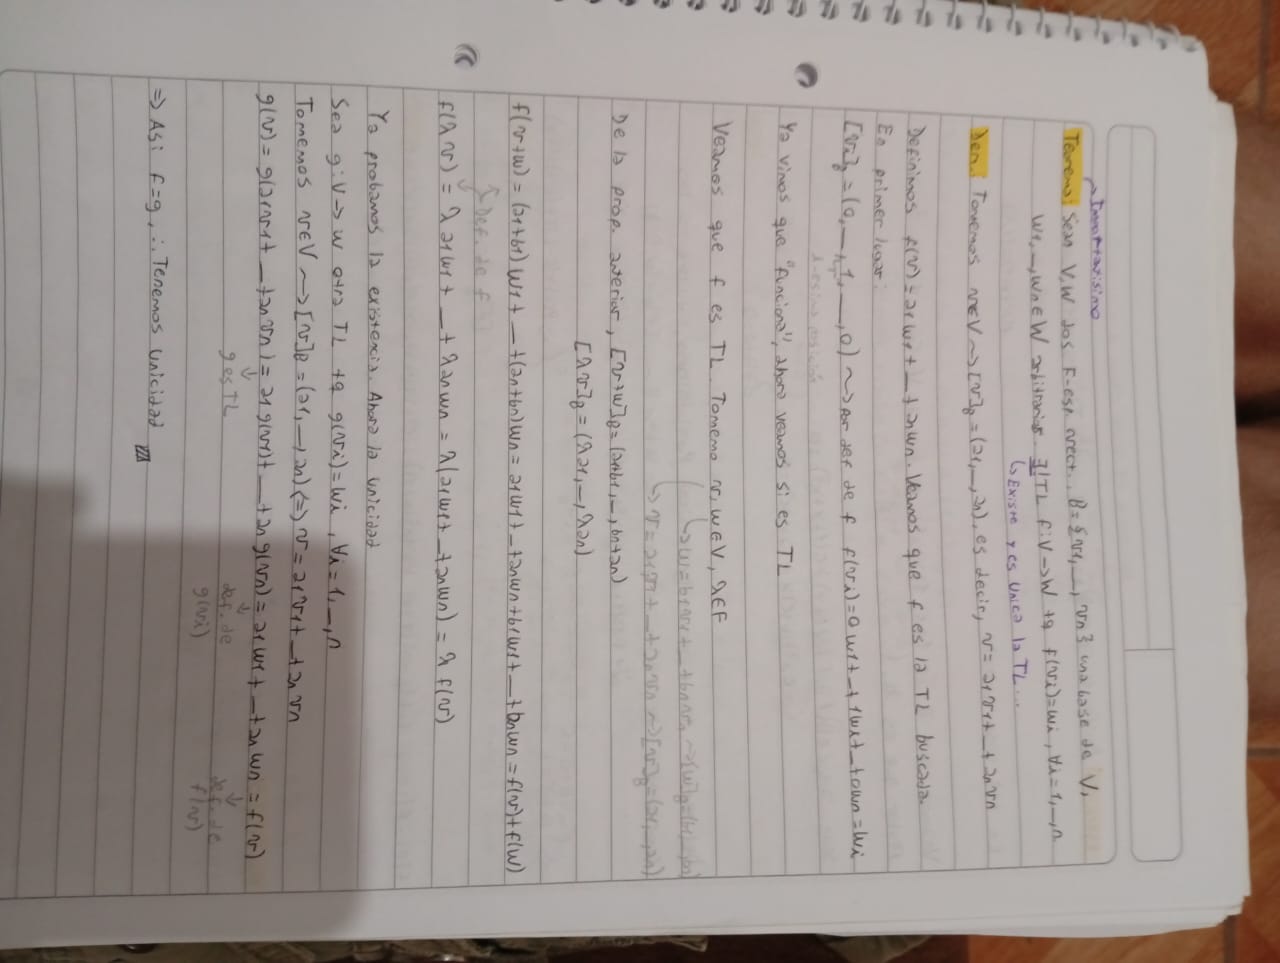 Importantísimo
Teorema: Sean V, W dos F-esp. vect., B={v1, _, vn} una base de V,
w1, _, wn ∈ W arbitrarios. ∃! TL f: V → W tq f(vi)=wi, ∀i=1, _, n
↳ Existe y es única la TL...
Dem: Tomemos v∈V ⤳ [v]B = (a1, _, an), es decir, v = a1v1 + _ + anvn
Definimos f(v) = a1w1 + _ + anwn. Veamos que f es la TL buscada.
En primer lugar:
[vi]B = (0, _, 1, _, 0) ⤳ por def de f f(vi) = 0w1 + _ + 1wi + _ + 0wn = wi
i-ésima posición
Ya vimos que "funciona", ahora veamos si es TL
Veamos que f es TL. Tomemo v, w ∈ V, λ∈F
↳ w = b1v1 + _ + bnvn ⤳ [w]B = (b1, _, bn)
↳ v = a1v1 + _ + anvn ⤳ [v]B = (a1, _, an)
De la prop. anterior, [v+w]B = (a1+b1, _, bn+an)
[λv]B = (λa1, _, λan)
f(v+w) = (a1+b1)w1 + _ + (an+bn)wn = a1w1 + _ + anwn + b1w1 + _ + bnwn = f(v) + f(w)
Def. de f
f(λv) = λa1w1 + _ + λanwn = λ(a1w1 + _ + anwn) = λ f(v)
Ya probamos la existencia. Ahora la unicidad
Sea g: V → W otra TL tq g(vi) = wi, ∀i=1, _, n
Tomemos v∈V ⤳ [v]B = (a1, _, an) ⟺ v = a1v1 + _ + anvn
g(v) = g(a1v1 + _ + anvn) = a1g(v1) + _ + an g(vn) = a1w1 + _ + anwn = f(v)
↓ g es TL ↓ def. de g(vi) ↓ def. de f(v)
⇒ Asi f=g, ∴ Tenemos unicidad